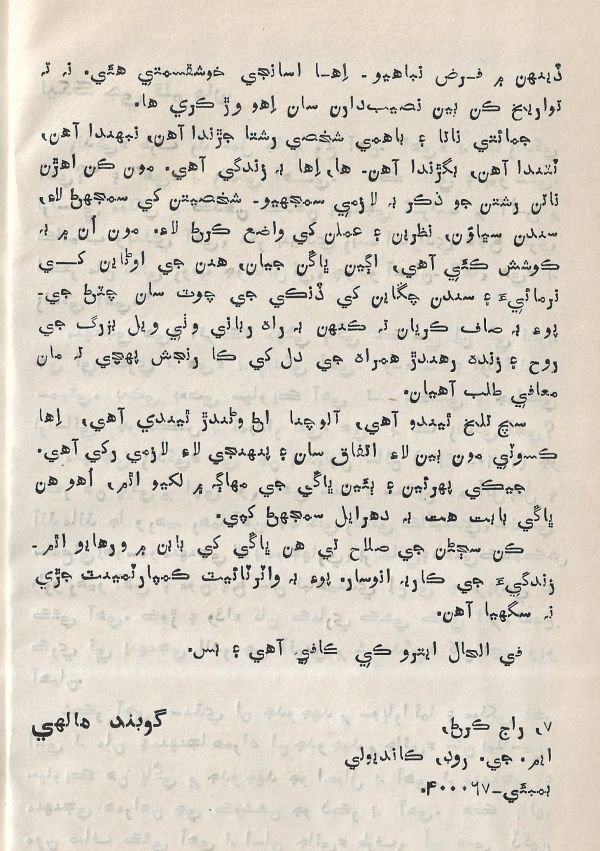 ڏينهن ۾ فرض نباهيو۔ اِها اسانجي خوشقسمتي هئي. نہ تہ
تواريخ ڪن ٻين نصيب‌دارن سان اِهو وڙ ڪري ها.
جمائتي ناتا ۽ باهمي شخصي رشتا جڙندا آهن، نبهندا آهن،
ٽٽندا آهن، بگڙندا آهن۔ ها، اِها بہ زندگي آهي. مون ڪن اهڙن
ناتن رشتن جو ذڪر بہ لازمي سمجهيو۔ شخصيتن کي سمجهڻ لاءِ،
سندن سڀاون، نظرين ۽ عملن کي واضع ڪرڻ لاءِ. مون اُن ۾ بہ
ڪوشش ڪئي آهي، اڳين ڀاڱن جيان، هنن جي اوڻاين کي
نرمائيءَ ۽ سندن چڱاين کي ڏنڪي جي چوٽ سان چٽڻ جي۔
پوءِ بہ صاف ڪريان تہ ڪنهن بہ راه رباني وٺي ويل بزرگ جي
روح ۽ زنده رهندڙ همراه جي دل کي ڪا رنجش پهچي تہ مان
معافي طلب آهيان.
سچ تلخ ٿيندو آهي، آلوچنا اڻ وڻندڙ ٿيندي آهي، اِها
ڪسوٽي مون ٻين لاءِ اتفاق سان ۽ پنهنجي لاءِ لازمي رکي آهي.
جيڪي پهرئين ۽ ٻئين ڀاڱي جي مهاڳ ۾ لکيو اٿم، اُهو هن
ڀاڱي بابت هت بہ دهرايل سمجهڻ کپي.
ڪن سڄڻن جي صلاح تي هن ڀاڱي کي بابن ۾ ورهايو اٿم۔
زندگيءَ جي ڪاريہ انوسار. پوءِ بہ واٽرٽائيٽ ڪمپارٽمينٽ جڙي
نہ سگهيا آهن.
في الحال ايترو ئي ڪافي آهي ۽ بس.
گوبند مالهي
۷، راج ڪرڻ،
ايم. جي. روڊ، ڪانديولي
بمبئي-۴۰۰۰۶۷.